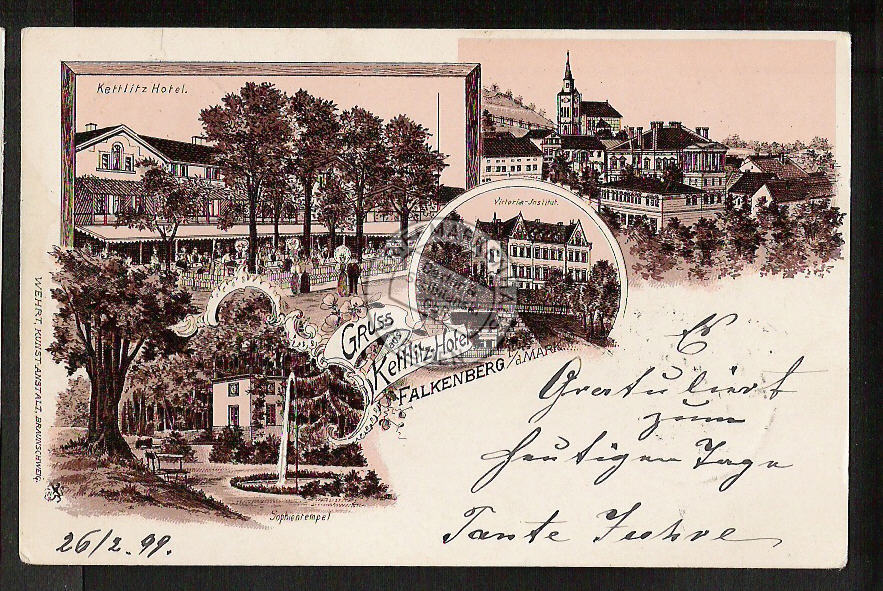 Kettlitz Hotel.
Victoria-Institut.
GRUSS
Kettlitz-Hotel
FALKENBERG i/d MARK
Sophientempel
WEHRT, KUNST-ANSTALT, BRAUNSCHWEIG.
Es
Gratuliert
zum
heutigen Tage
Tante
26/2. 99.